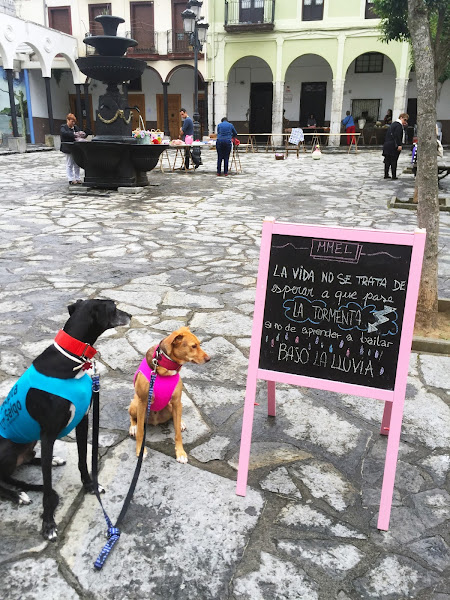 MMEL
LA VIDA NO SE TRATA DE
esperar a que pase
LA TORMENTA
si no de aprender a bailar
BAJO LA LLUVIA